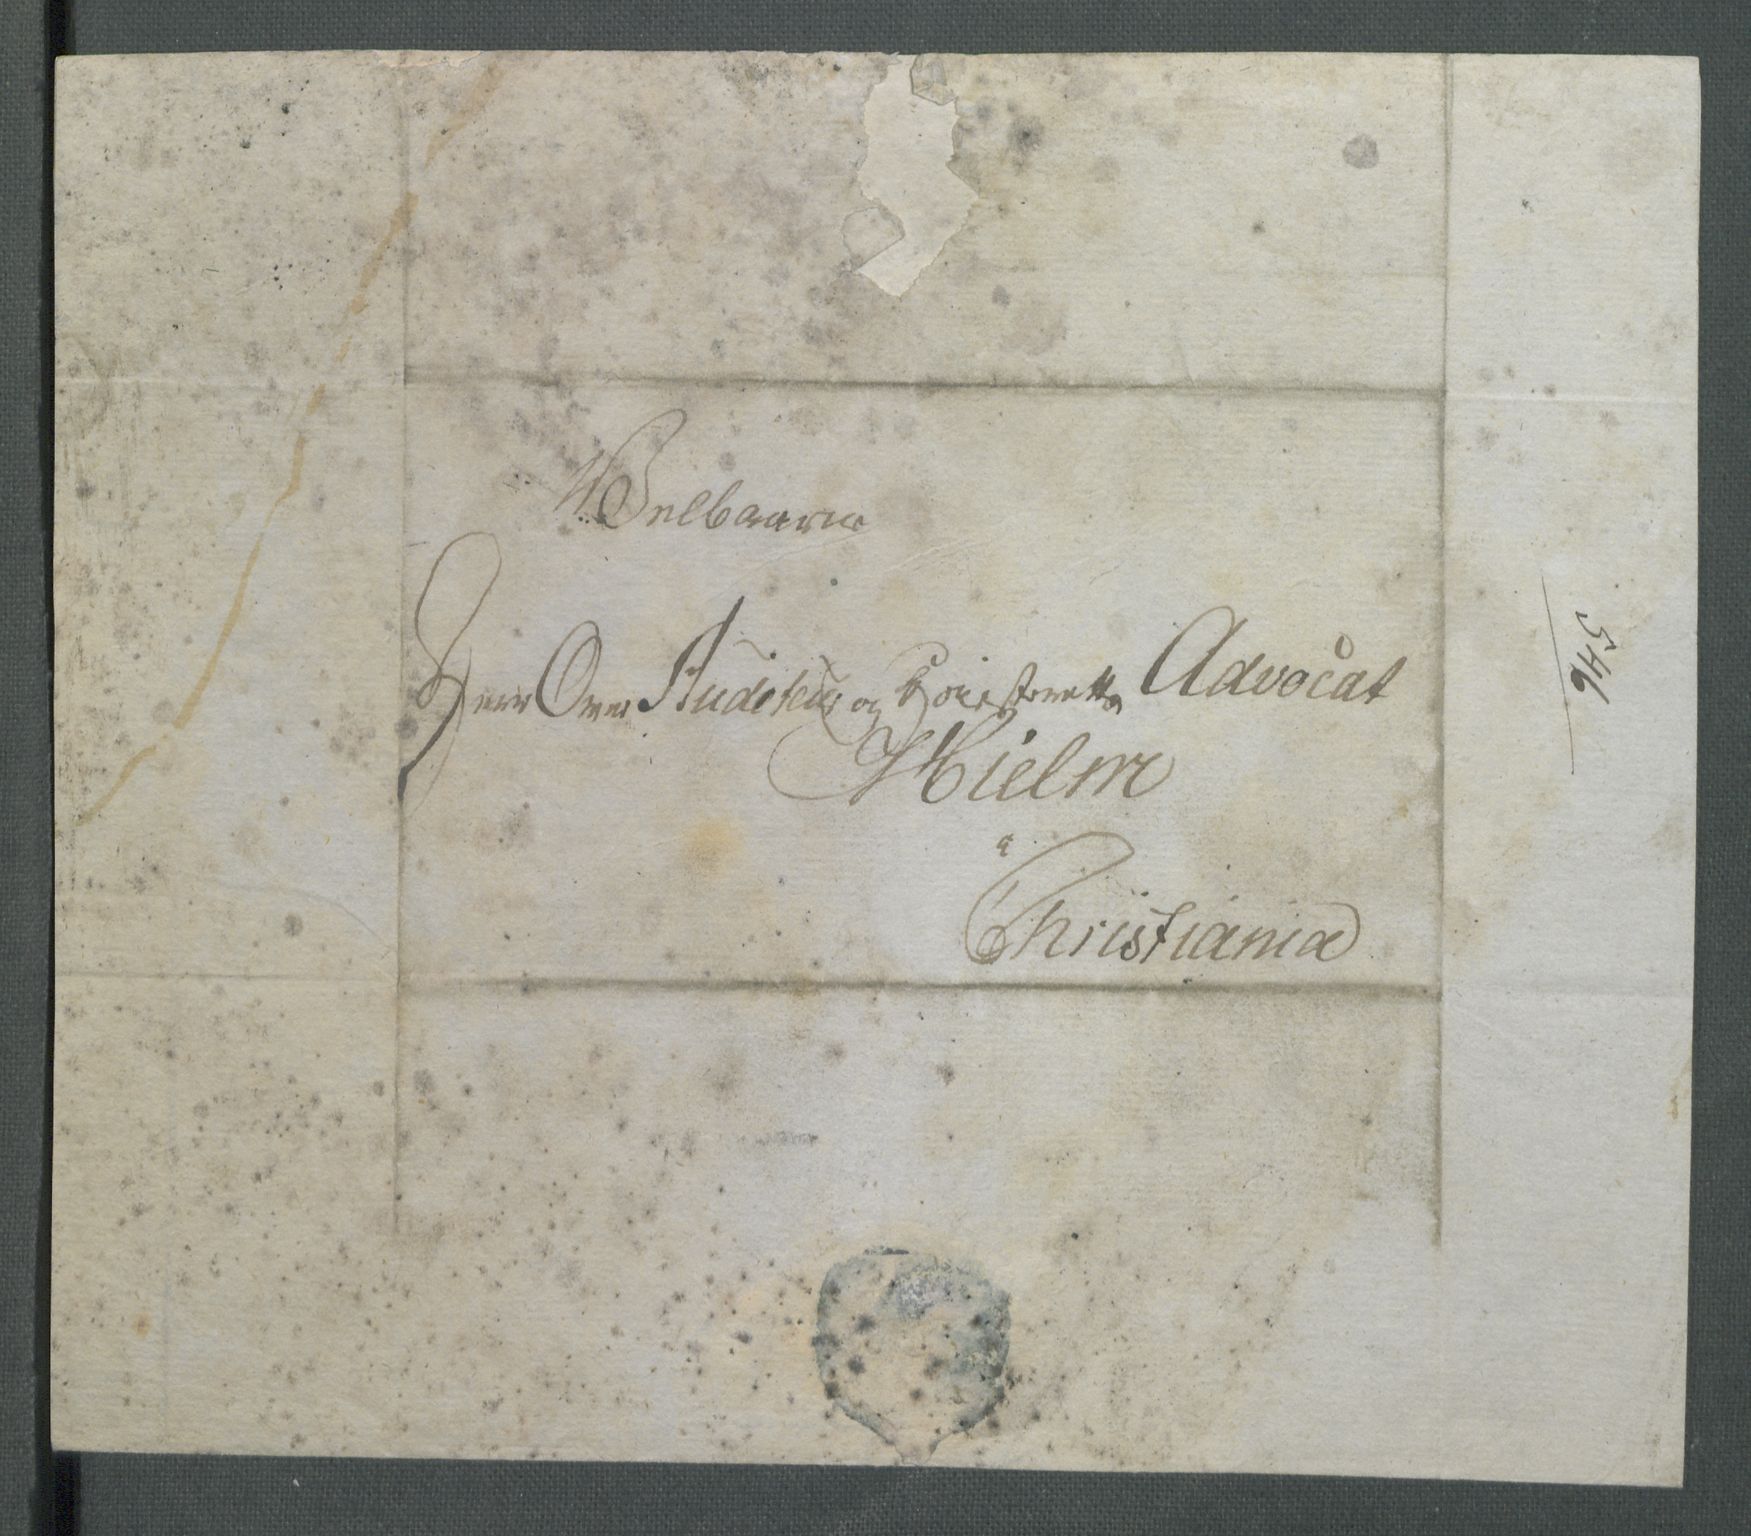 Velbaarne
Herr Over Auditeur og Høiesteretts Advocat
Hielm
a
Christiania
546